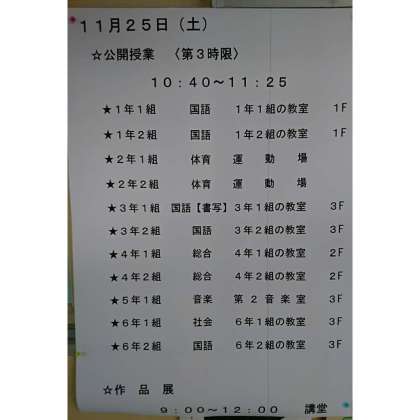 11月25日（土）
☆公開授業　〈第3時限〉
10：40～11：25
★1年1組　国語　1年1組の教室　1F
★1年2組　国語　1年2組の教室　1F
★2年1組　体育　運動場
★2年2組　体育　運動場
★3年1組　国語【書写】3年1組の教室　3F
★3年2組　国語　3年2組の教室　3F
★4年1組　総合　4年1組の教室　2F
★4年2組　総合　4年2組の教室　2F
★5年1組　音楽　第2音楽室　3F
★6年1組　社会　6年1組の教室　3F
★6年2組　国語　6年2組の教室　3F
☆作品展
9：00～12：00　講堂